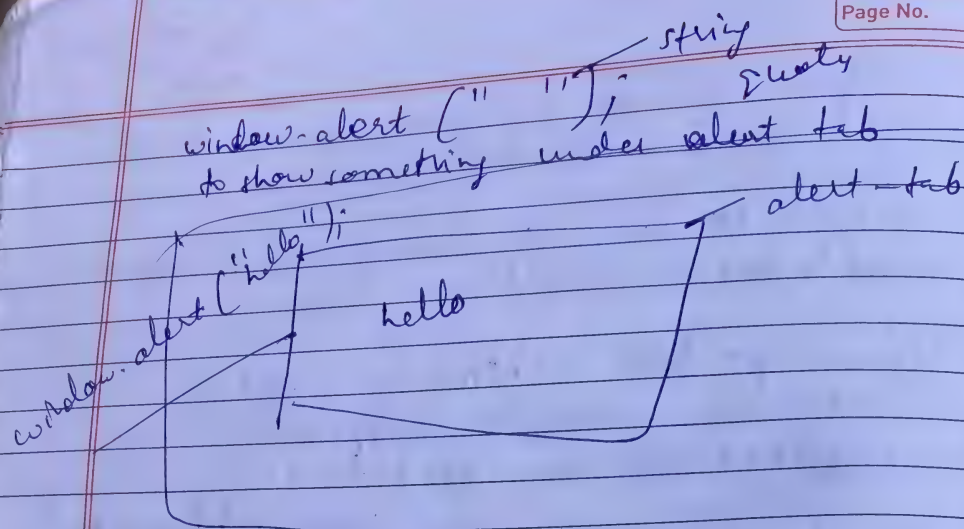 Page No.
string
window.alert (" "); Quots
to show something under alert tab
alert-tab
window.alert ("hello");
hello